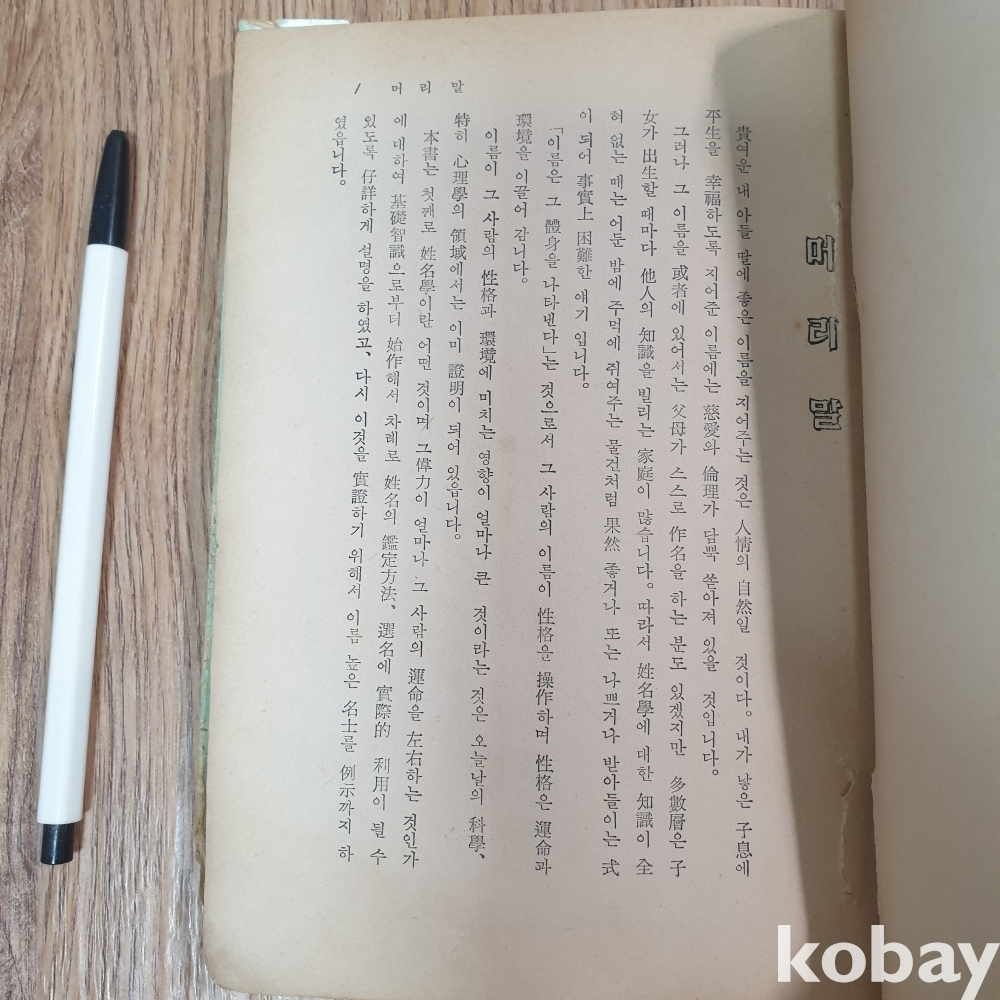 머리말
貴여운 내 아들 딸에 좋은 이름을 지어주는 것은 人情의 自然일 것이다。내가 낳은 子息에
平生을 幸福하도록 지어준 이름에는 慈愛와 倫理가 담뿍 쏟아져 있을 것입니다。
그러나 그 이름을 或者에 있어서는 父母가 스스로 作名을 하는 분도 있겠지만 多數層은 子
女가 出生할 때마다 他人의 知識을 빌리는 家庭이 많습니다。따라서 姓名學에 대한 知識이 全
혀 없는 때는 어둔 밤에 주먹에 쥐여주는 물건처럼 果然 좋거나 또는 나쁘거나 받아들이는 式
이 되어 事實上 困難한 얘기 입니다。
「이름은 그 體身을 나타낸다」는 것으로서 그 사람의 이름이 性格을 操作하며 性格은 運命과
環境을 이끌어 갑니다。
이름이 그 사람의 性格과 環境에 미치는 영향이 얼마나 큰 것이라는 것은 오늘날의 科學、
特히 心理學의 領域에서는 이미 證明이 되어 있읍니다。
本書는 첫째로 姓名學이란 어떤 것이며 그 偉力이 얼마나 그 사람의 運命을 左右하는 것인가
에 대하여 基礎智識으로부터 始作해서 차례로 姓名의 鑑定方法、選名에 實際的 利用이 될 수
있도록 仔詳하게 설명을 하였고、다시 이것을 實證하기 위해서 이름 높은 名士를 例示까지 하
였읍니다。
1 머리말
kobay